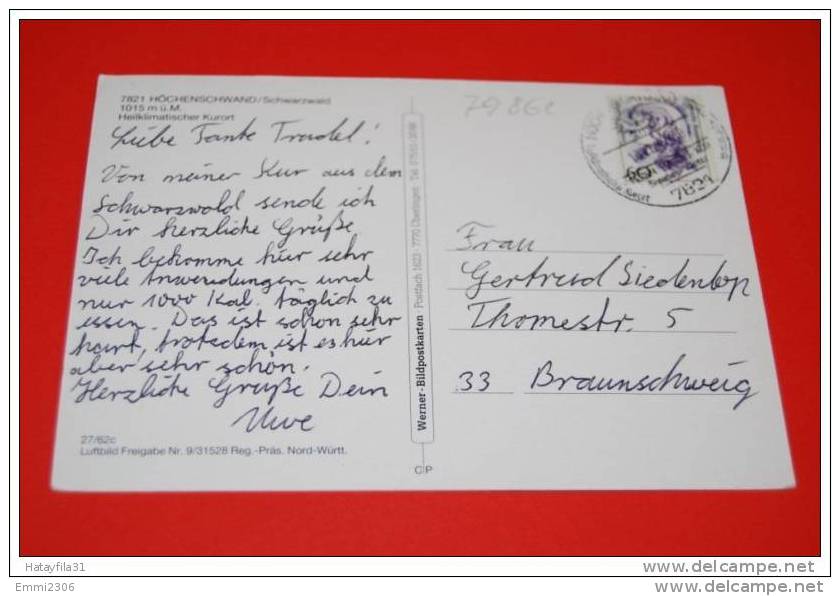 7821 HÖCHENSCHWAND/Schwarzwald
1015 m ü.M.
Heilklimatischer Kurort
Liebe Tante Traudel!
Von meiner Kur aus dem
Schwarzwald sende ich
Dir herzliche Grüße.
Ich bekomme hier sehr
viele Anwendungen und
nur 1000 Kal. täglich zu
essen. Das ist schon sehr
hart, trotzdem ist es hier
aber sehr schön.
Herzliche Grüße Dein
Uwe
27/62c
Luftbild Freigabe Nr. 9/31528 Reg.-Präs. Nord-Württ.
Werner-Bildpostkarten · Postfach 1623 · 7770 Überlingen
CP
7821
Frau
Gertrud Siedentop
Thomestr. 5
33 Braunschweig
Hatayfila31
Emmi2306
www.delcampe.net